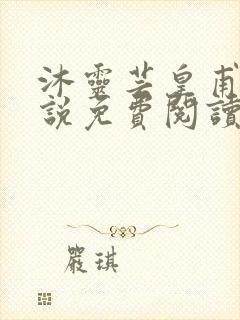 沐靈芸皇甫
說免費閱讀
嚴琪